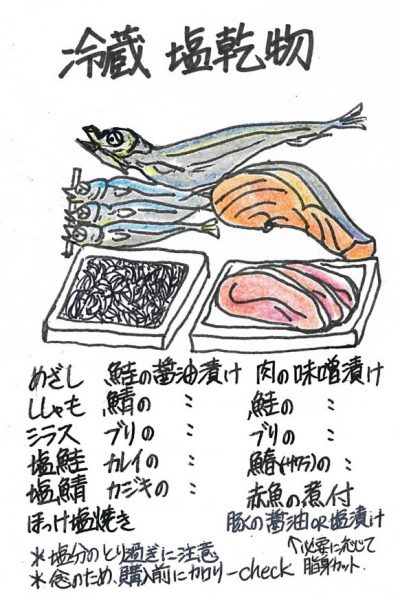 冷蔵 塩乾物
めざし 鮭の醤油漬け 肉の味噌漬け
ししゃも 鯖の 〃 鮭の 〃
シラス ブリの 〃 ブリの 〃
塩鮭 カレイの 〃 鰆(サワラ)の 〃
塩鯖 カジキの 〃 赤魚の煮付
ほっけ塩焼き 豚の醤油OR塩漬け
*塩分のとり過ぎに注意 ↑必要に応じて
*念のため、購入前にカロリーcheck 脂身カット.